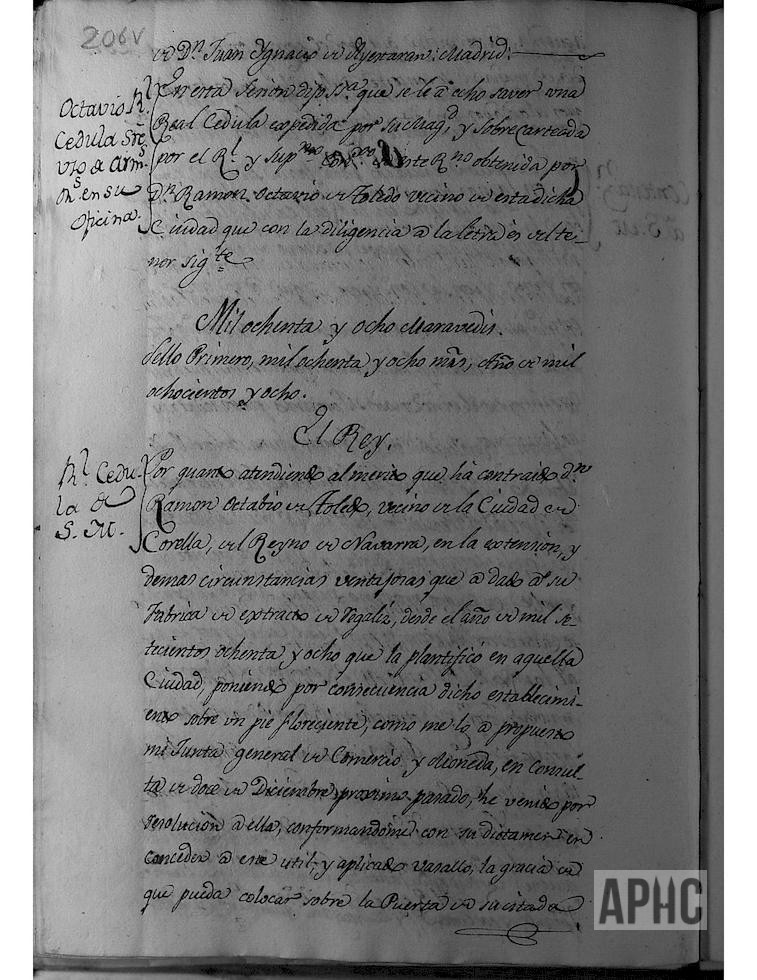 206V
de Dn. Juan Ygnacio de Ayestaran: Madrid:
Octavio Rl.
Cedula sre
uso de Arms
Rs. en su
Oficina.
En esta sesion dijo que se le a echo saver una
Real Cedula expedida por su Magd. y sobrecarteada
por el Rl. y Supmo. de este Rno. obtenida por
Dn. Ramon Octavio de Toledo vecino de esta dicha
Ciudad que con la diligencia a la letra es del te-
nor sigte.
Mil ochenta y ocho Maravedis.
Sello Primero, mil ochenta y ocho mrs, Año de mil
ochocientos y ocho.
El Rey.
Rl. Cedu-
la de
S. M.
Por quanto atendiendo al merito que ha contraido dn.
Ramon Octabio de Toledo, vecino de la Ciudad de
Corella, del Reyno de Navarra, en la extension, y
demas circunstancias ventajosas que a dado a su
Fabrica de extracto de regaliz, desde el año de mil se-
tecientos ochenta y ocho que la plantificó en aquella
Ciudad, poniendo por consecuencia dicho establecimi-
ento sobre un pie floreciente, como me lo a propuesto
mi Junta general de Comercio y Moneda, en consul-
ta de doce de Diciembre proximo pasado, he venido por
resolucion a ella, conformandome con su dictamen en
conceder a este util, y aplicado vasallo, la gracia de
que pueda colocar sobre la Puerta de su citada
APHC